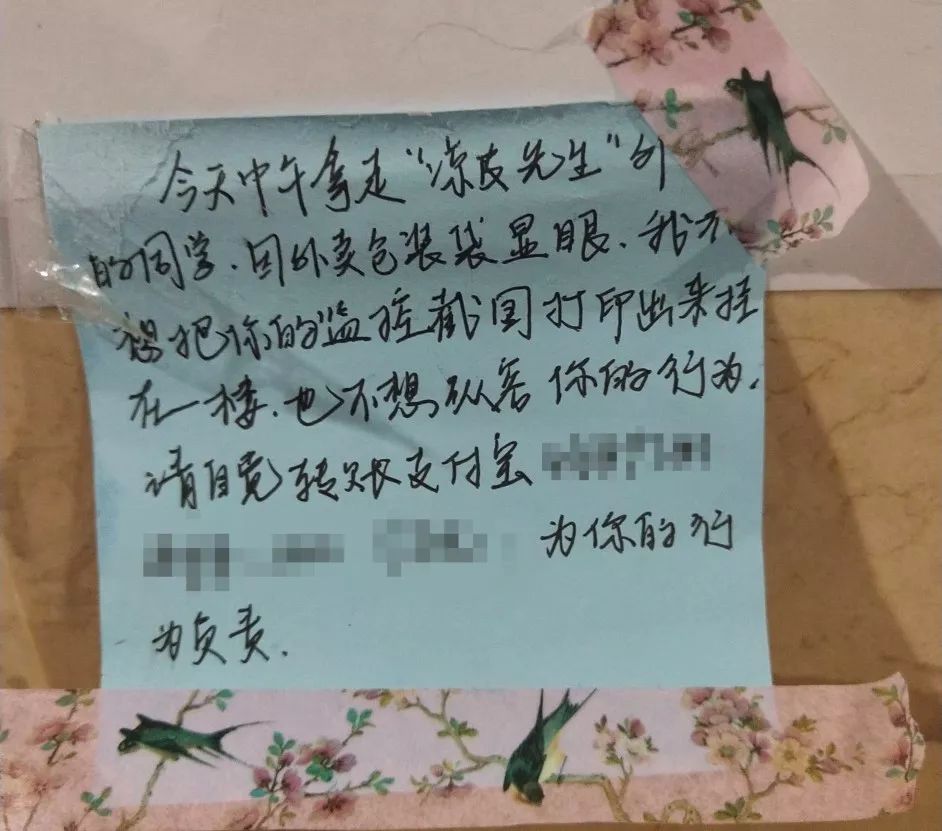 今天中午拿走“凉皮先生”外
的同学．因外卖包装袋显眼．我不
想把你的监控截图打印出来挂
在一楼．也不想纵容你的行为．
请自觉转账支付宝
为你的行
为负责．